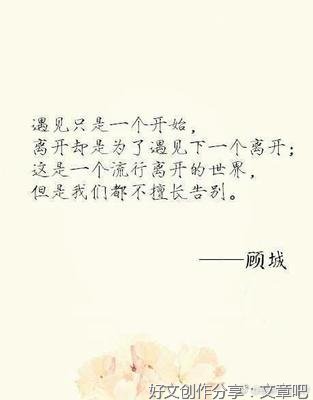 遇见只是一个开始，
离开却是为了遇见下一个离开；
这是一个流行离开的世界，
但是我们都不擅长告别。
——顾城
好文创作分享：文章吧